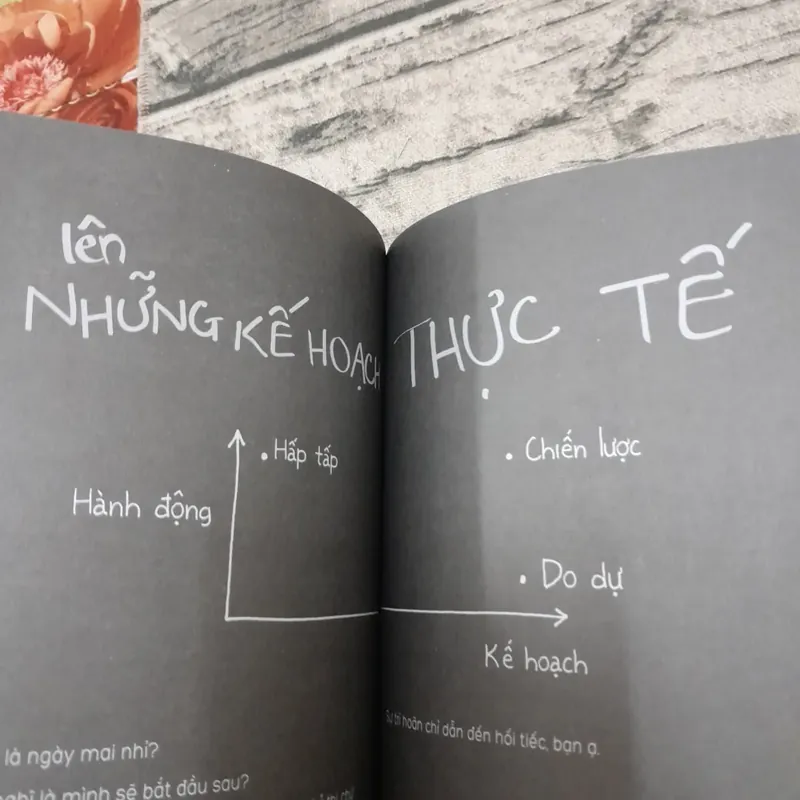 lên
NHỮNG KẾ HOẠCH THỰC TẾ
Hấp tấp
Chiến lược
Hành động
Do dự
Kế hoạch
là ngày mai nhỉ?
là mình sẽ bắt đầu sau?
Sự trì hoãn chỉ dẫn đến hối tiếc, bạn ạ.